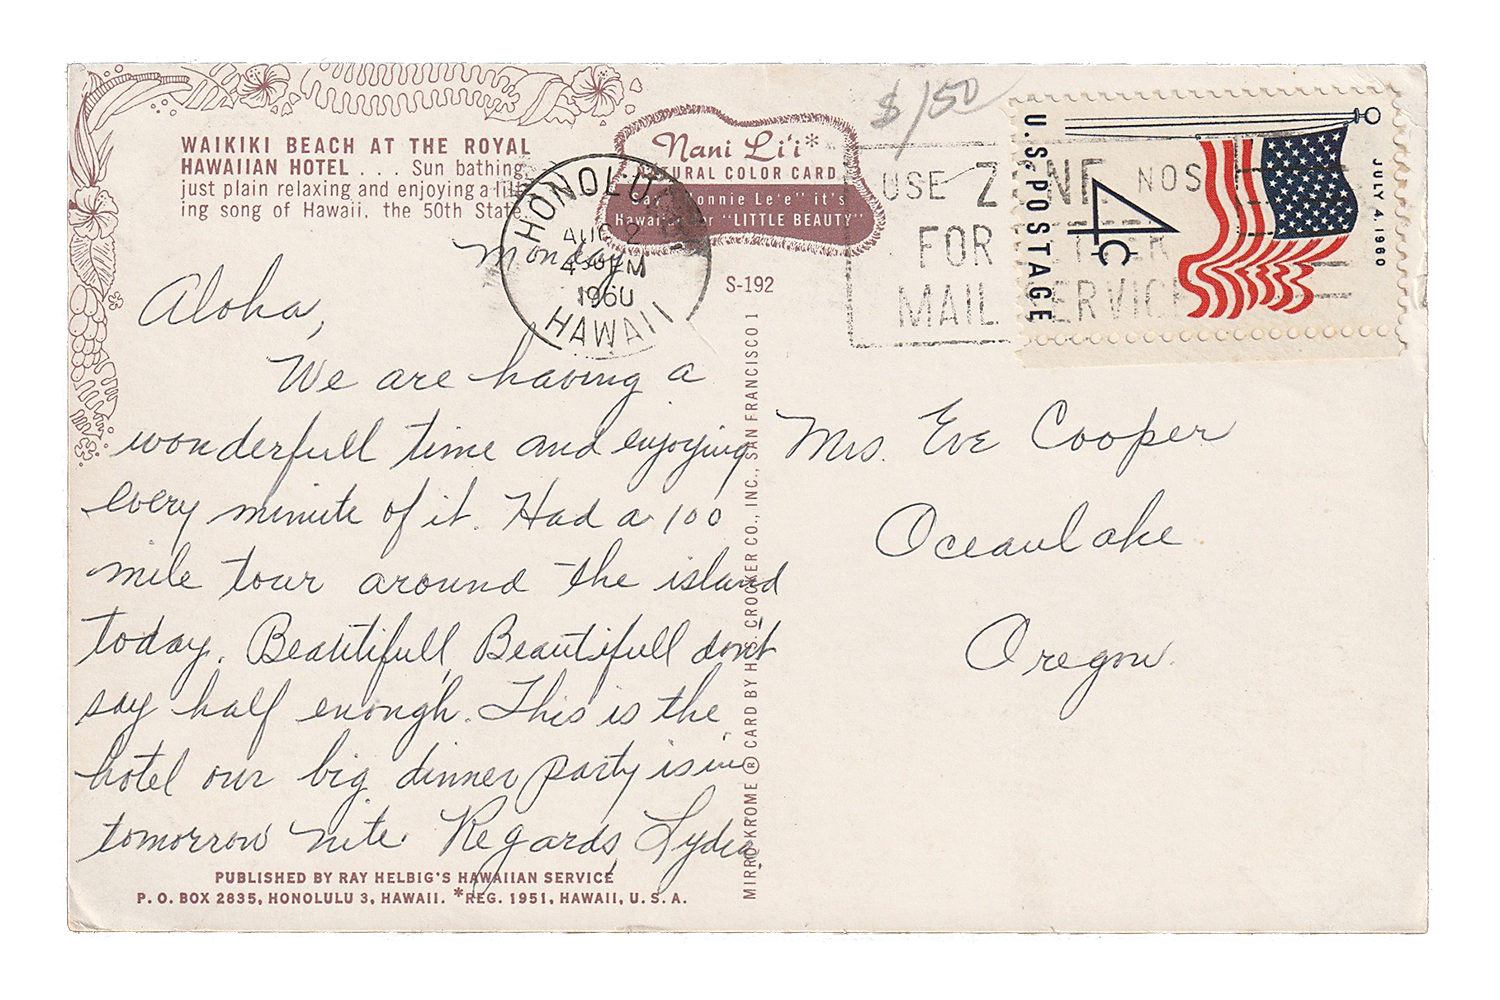 $1.50
WAIKIKI BEACH AT THE ROYAL
HAWAIIAN HOTEL . . . Sun bathing,
just plain relaxing and enjoying a
ing song of Hawaii, the 50th State
Nani Li'i*
NATURAL COLOR CARD
"onnie Le'e" it's
"LITTLE BEAUTY"
S-192
HONOLULU
AUG 2
4 PM
1960
HAWAII
USE ZONE NOS
FOR
MAIL SERVICE
U.S. POSTAGE
4¢
JULY 4, 1960
Monday
Aloha,
We are having a
wonderfull time and enjoying
every minute of it. Had a 100
mile tour around the island
today. Beautifull, Beautifull don't
say half enough. This is the
hotel our big dinner party is in
tomorrow nite. Regards, Lydia.
Mrs. Eve Cooper
Oceanlake
Oregon.
MIRRO-KROME ® CARD BY H.S. CROCKER CO., INC., SAN FRANCISCO 1
PUBLISHED BY RAY HELBIG'S HAWAIIAN SERVICE
P. O. BOX 2835, HONOLULU 3, HAWAII. *REG. 1951, HAWAII, U. S. A.